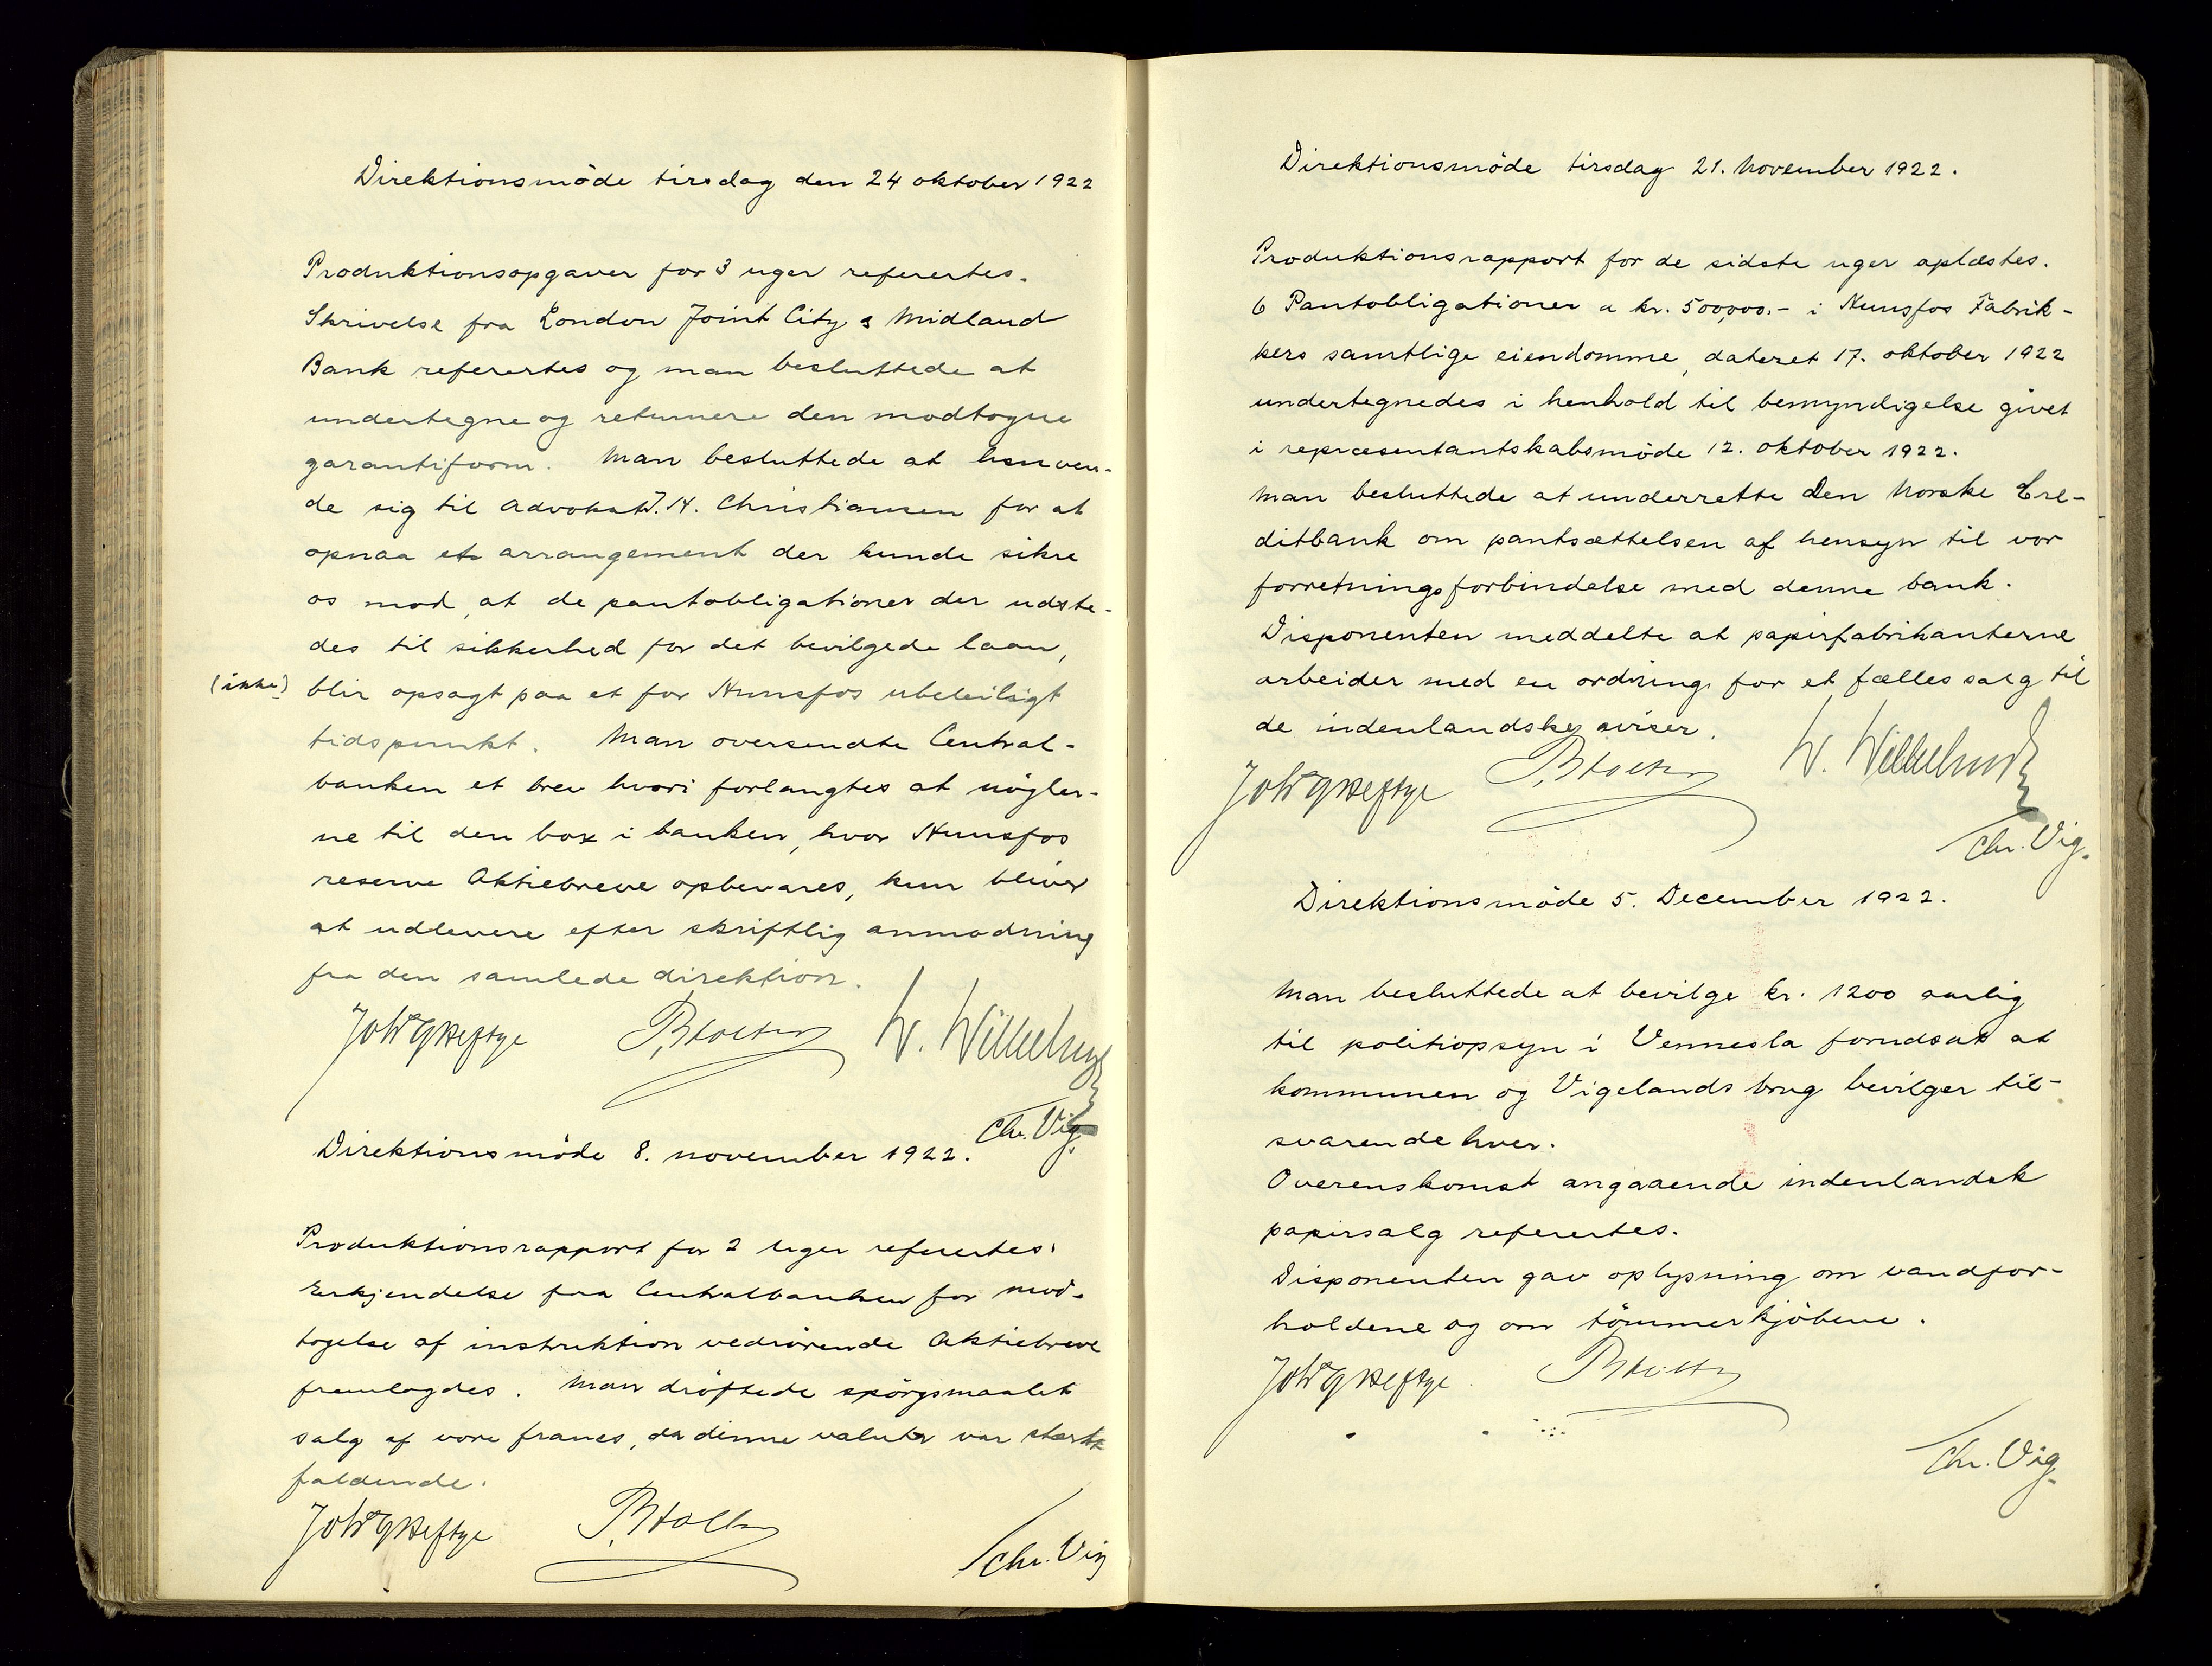 Direktionsmöde tirsdag den 24 oktober 1922
Produktionsopgaver for 3 uger referertes.
Skrivelse fra London Joint City & Midland
Bank referertes og man besluttede at
undertegne og returnere den modtogne
garantiform. Man besluttede at henven-
de sig til Advokat J. N. Christiansen for at
opnaa et arrangement der kunde sikre
os mod, at de pantobligationer der udste-
des til sikkerhed for det bevilgede laan,
(ikke) blir opsagt paa et for Hunsfos ubeleiligt
tidspunkt. Man oversendte Central-
banken et brev hvori forlangtes at nögler-
ne til den box i banken, hvor Hunsfos
reserve Aktiebreve opbevares, kun bliver
at udlevere efter skriftlig anmodning
fra den samlede direktion.
W. Wilhelmsen
Chr. Vig.
Direktionsmöde 8. november 1922.
Produktionsrapport for 2 uger referertes.
Erkjendelse fra Centralbanken for mod-
togelse af instruktion vedrörende Aktiebreve
fremlagdes. Man dröftede spörgsmaalet
salg af vore francs, da denne valuta var sterkt
faldende.
Chr. Vig
Direktionsmöde tirsdag 21. November 1922.
Produktionsrapport for de sidste uger oplæstes.
6 Pantobligationer a kr. 500,000.- i Hunsfos Fabrik-
kers samtlige eiendomme, dateret 17. oktober 1922
undertegnedes i henhold til bemyndigelse givet
i repræsentantskabsmöde 12. oktober 1922.
Man besluttede at underrette Den Norske Cre-
ditbank om pantsættelsen af hensyn til vor
forretningsforbindelse med denne bank.
Disponenten meddelte at papirfabrikanterne
arbeider med en ordning for et fælles salg til
de indenlandske aviser.
W. Wilhelmsen
Chr. Vig.
Direktionsmöde 5. December 1922.
Man besluttede at bevilge kr. 1200 aarlig
til politiopsyn i Vennesla forudsat at
kommunen og Vigelands brug bevilger til-
svarende hver.
Overenskomst angaaende indenlandsk
papirsalg referertes.
Disponenten gav oplysning om vandfor-
holdene og om tömmerkjöbene.
Chr. Vig.